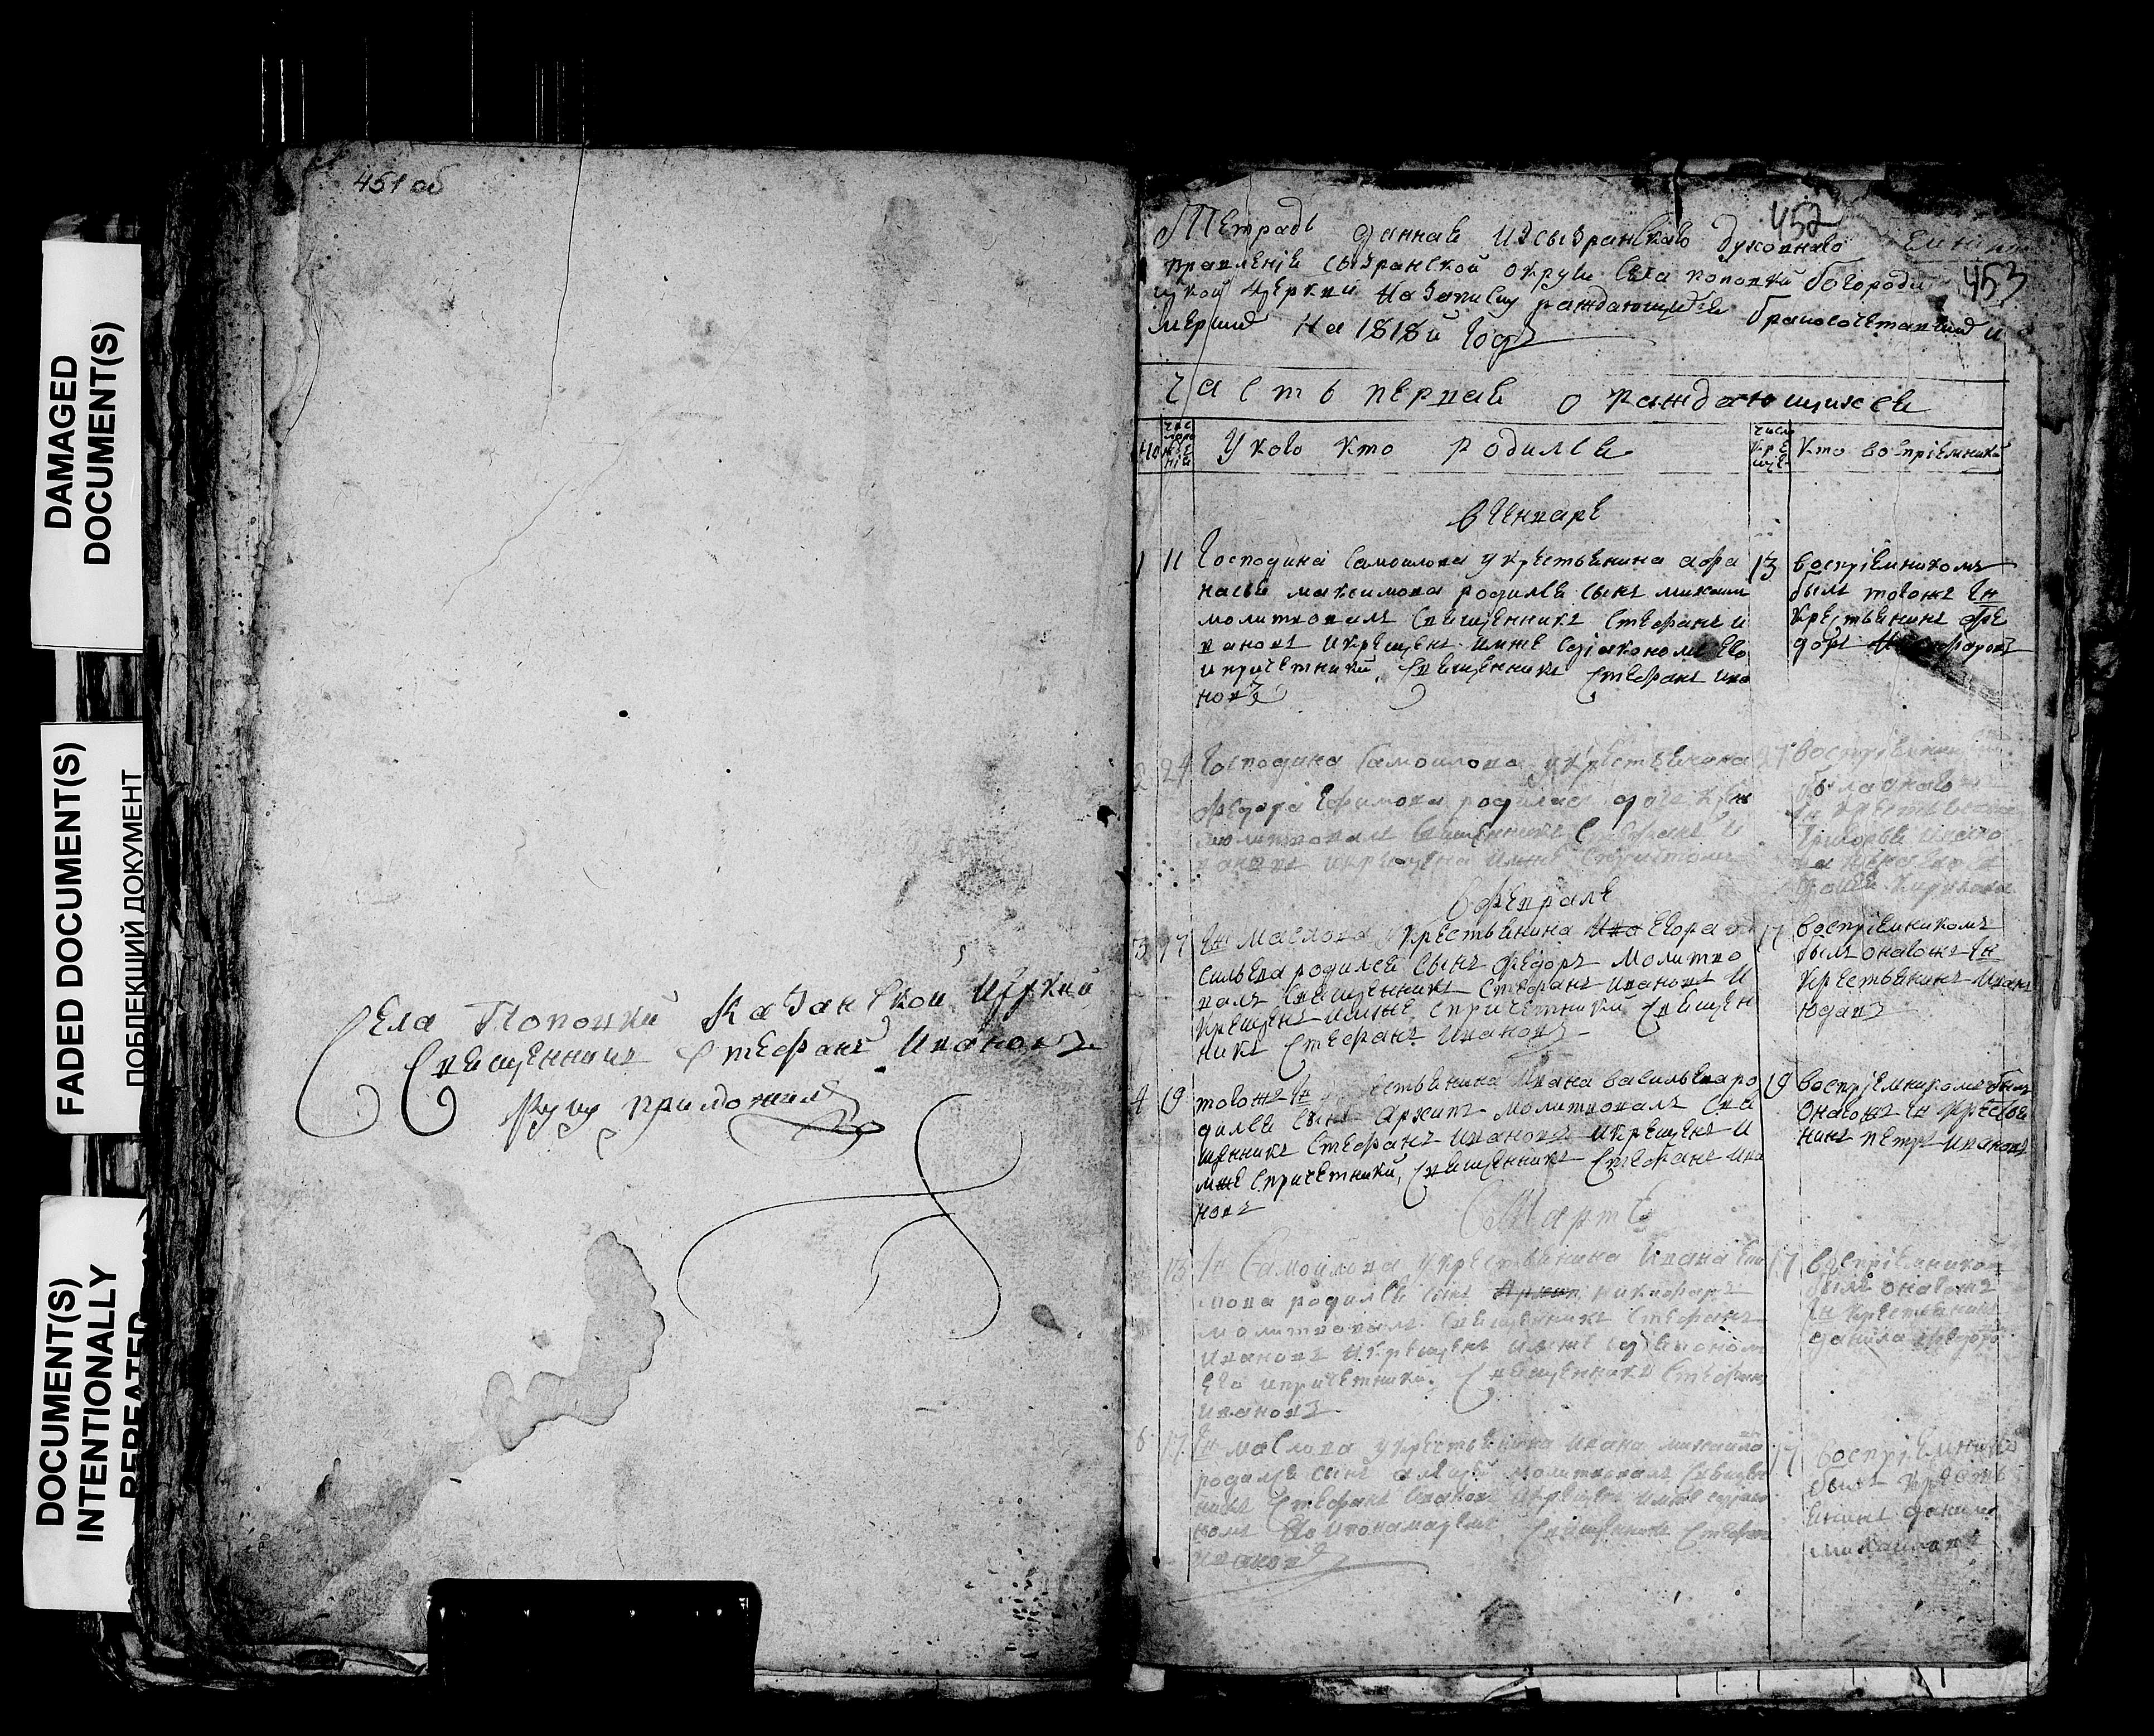 DAMAGED
DOCUMENT(S)
FADED DOCUMENT(S)
ПОБЛЕКШИЙ ДОКУМЕНТ
DOCUMENT(S)
INTENTIONALLY
REPEATED
451 об
Села Поповки Казанской Церкви
Священникъ Стефанъ Ивановъ
руку приложилъ
452
453
Тетрадь данная изсызранскаго духовнаго
правления сызранской округи села поповки богороди
цкой церкви На записку раждающихся бракосочетавших и
мерших На 1818й годъ
часть первая о раждающихся
No
число рожде ния
Уково кто родился
число крещ
Кто восприемники
в Генваре
1 11 Господина Самоилова укрестьянина афа
насья максимова родился сынъ михаил
молитвовалъ Священникъ Стефанъ и
вановъ икрещенъ имже содиакономъ Ево
и причетники. Священникъ Стефанъ ива
новъ
13 восприемникомъ
былъ тогожъ Гн
крестьянинъ фе
доръ
2 24 Господина Самоилова укрестьянина
федота Ефимова родилась дочь
молитвовалъ Священникъ Стефанъ и
вановъ икрещена имже
27
была онаго
Григорья
Кирилова
в Феврале
3 17 Гн Маслова укрестьянина Егора ва
сильева родился сынъ федоръ Молитво
валъ Священникъ Стефанъ Ивановъ И
крещенъ имже спричетники Священ
никъ Стефанъ Ивановъ
17 восприемникомъ
былъ онагожъ Гн
крестьянинъ Иванъ
Юдавъ
4 19 тогожъ Гн крестьянина Ивана васильева ро
дился сынъ архипъ молитвовалъ Свя
щенникъ Стефанъ Ивановъ икрещенъ и
мже спричетники, Священникъ Стефанъ Ива
новъ
19 восприемникомъ былъ
онагожъ Гн крестья
нинъ петръ ивановъ
в Марте
13 Гн Самойлова укрестьянина Ивана
мова родился сынъ никифоръ
молитвовалъ Священникъ Стефанъ
Ивановъ икрещенъ имже содиаконом
Ево ипричетники. Священникъ Стефанъ
Ивановъ
17 восприемником
былъ онагожъ
Гн крестьянинъ
данила
6 17 Гн маслова укрестьянина ивана михайло
родился сынъ алексей молитвовалъ Священ
никъ Стефанъ Ивановъ икрещенъ имже содиако
номъ Ево ипонамаремъ Священникъ Стефанъ
Ивановъ
17 восприемнико
былъ кресть
янинъ данила
михаиловъ